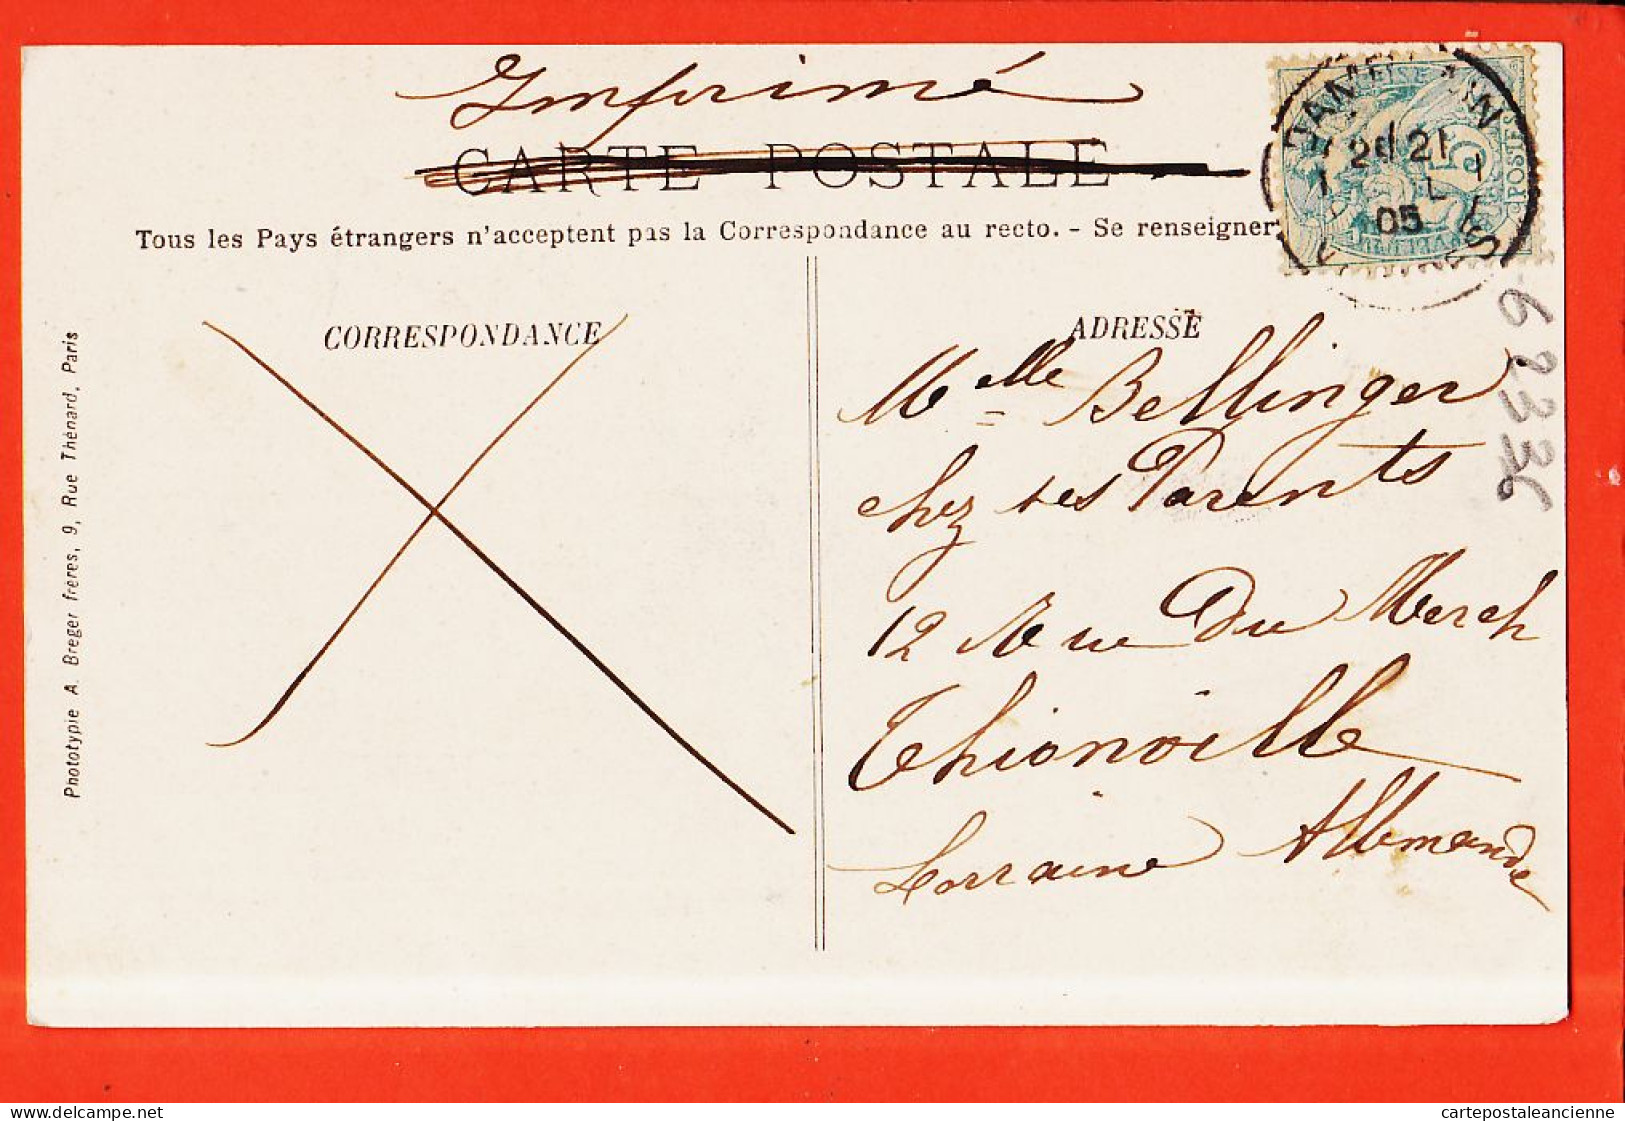 Imprimé
CARTE POSTALE
Tous les Pays étrangers n'acceptent pas la Correspondance au recto. - Se renseigner
CORRESPONDANCE
ADRESSE
Melle Bellinger
chez ses Parents
12 Rue Du March
Thionville
Lorraine Allemande
Phototypie A. Breger frères, 9, Rue Thénard, Paris
POSTES
21
05
6233
cartepostaleancienne
delcampe.net